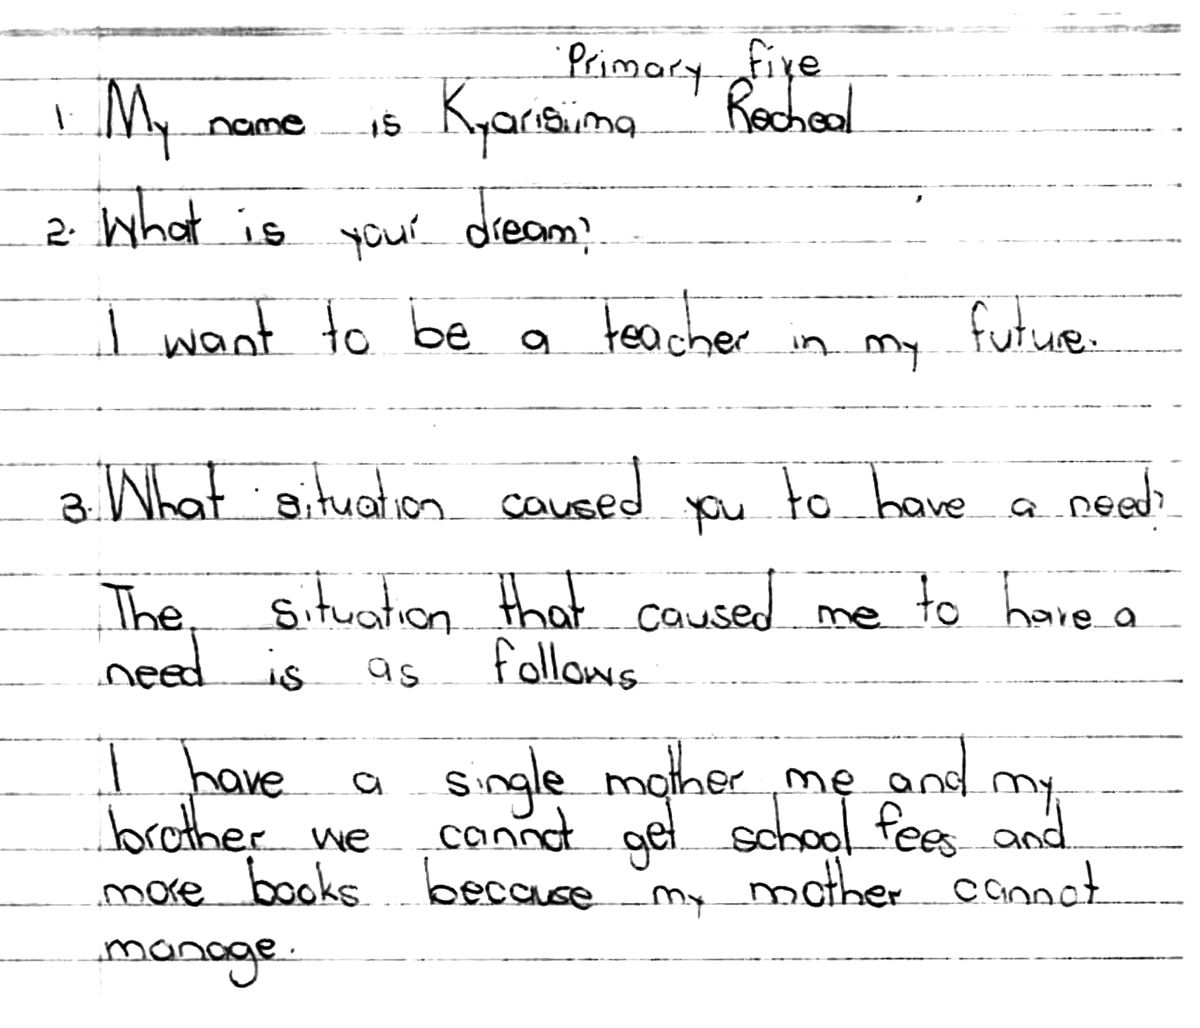 Primary five
1. My name is Kyarisiima Recheal
2. What is your dream?
I want to be a teacher in my future.
3. What situation caused you to have a need?
The situation that caused me to have a
need is as follows
I have a single mother me and my
brother we cannot get school fees and
more books because my mother cannot
manage.